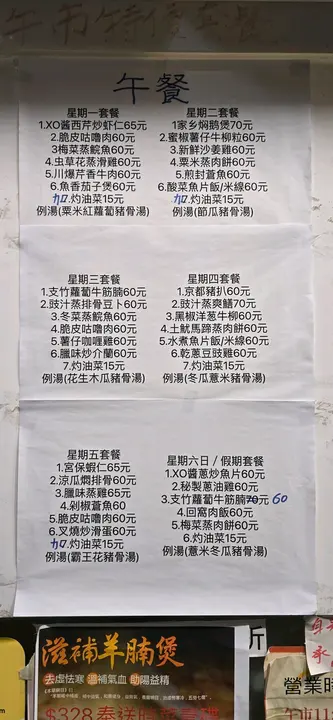 午市特價套餐
午餐
星期一套餐
1.XO醬西芹炒虾仁65元
2.脆皮咕嚕肉60元
3梅菜蒸鯇魚60元
4.虫草花蒸滑雞60元
5.川爆芹香牛肉60元
6.魚香茄子煲60元
加.灼油菜15元
例湯(粟米紅蘿蔔豬骨湯)
星期二套餐
1家乡焖鹅煲70元
2.蜜椒薯仔牛柳粒60元
3.新鮮沙姜雞60元
4.粟米蒸肉餅60元
5.煎封蒼魚60元
6.酸菜魚片飯/米線60元
加.灼油菜15元
例湯(節瓜豬骨湯)
星期三套餐
1.支竹蘿蔔牛筋腩60元
2.豉汁蒸排骨豆卜60元
3.冬菜蒸鯇魚60元
4.脆皮咕嚕肉60元
5.薯仔咖喱雞60元
6.臘味炒介蘭60元
7.灼油菜15元
例湯(花生木瓜豬骨湯)
星期四套餐
1.京都豬扒60元
2.豉汁蒸爽鱔70元
3.黑椒洋葱牛柳60元
4.土魷馬蹄蒸肉餅60元
5.水煮魚片飯/米線60元
6.乾蔥豆豉雞60元
7.灼油菜15元
例湯(冬瓜薏米豬骨湯)
星期五套餐
1.宮保蝦仁65元
2.涼瓜燜排骨60元
3.臘味蒸雞65元
4.剁椒蒼魚60
5.脆皮咕嚕肉60元
6.叉燒炒滑蛋60元
加.灼油菜15元
例湯(霸王花豬骨湯)
星期六日/假期套餐
1.XO醬蔥炒魚片60元
2.秘製蔥油雞60元
3.支竹蘿蔔牛筋腩70元 60
4.回窩肉飯60元
5.梅菜蒸肉餅60元
6.灼油菜15元
例湯(薏米冬瓜豬骨湯)
滋補羊腩煲
去虛怯寒 滋補氣血 助陽益精
$328
營業時